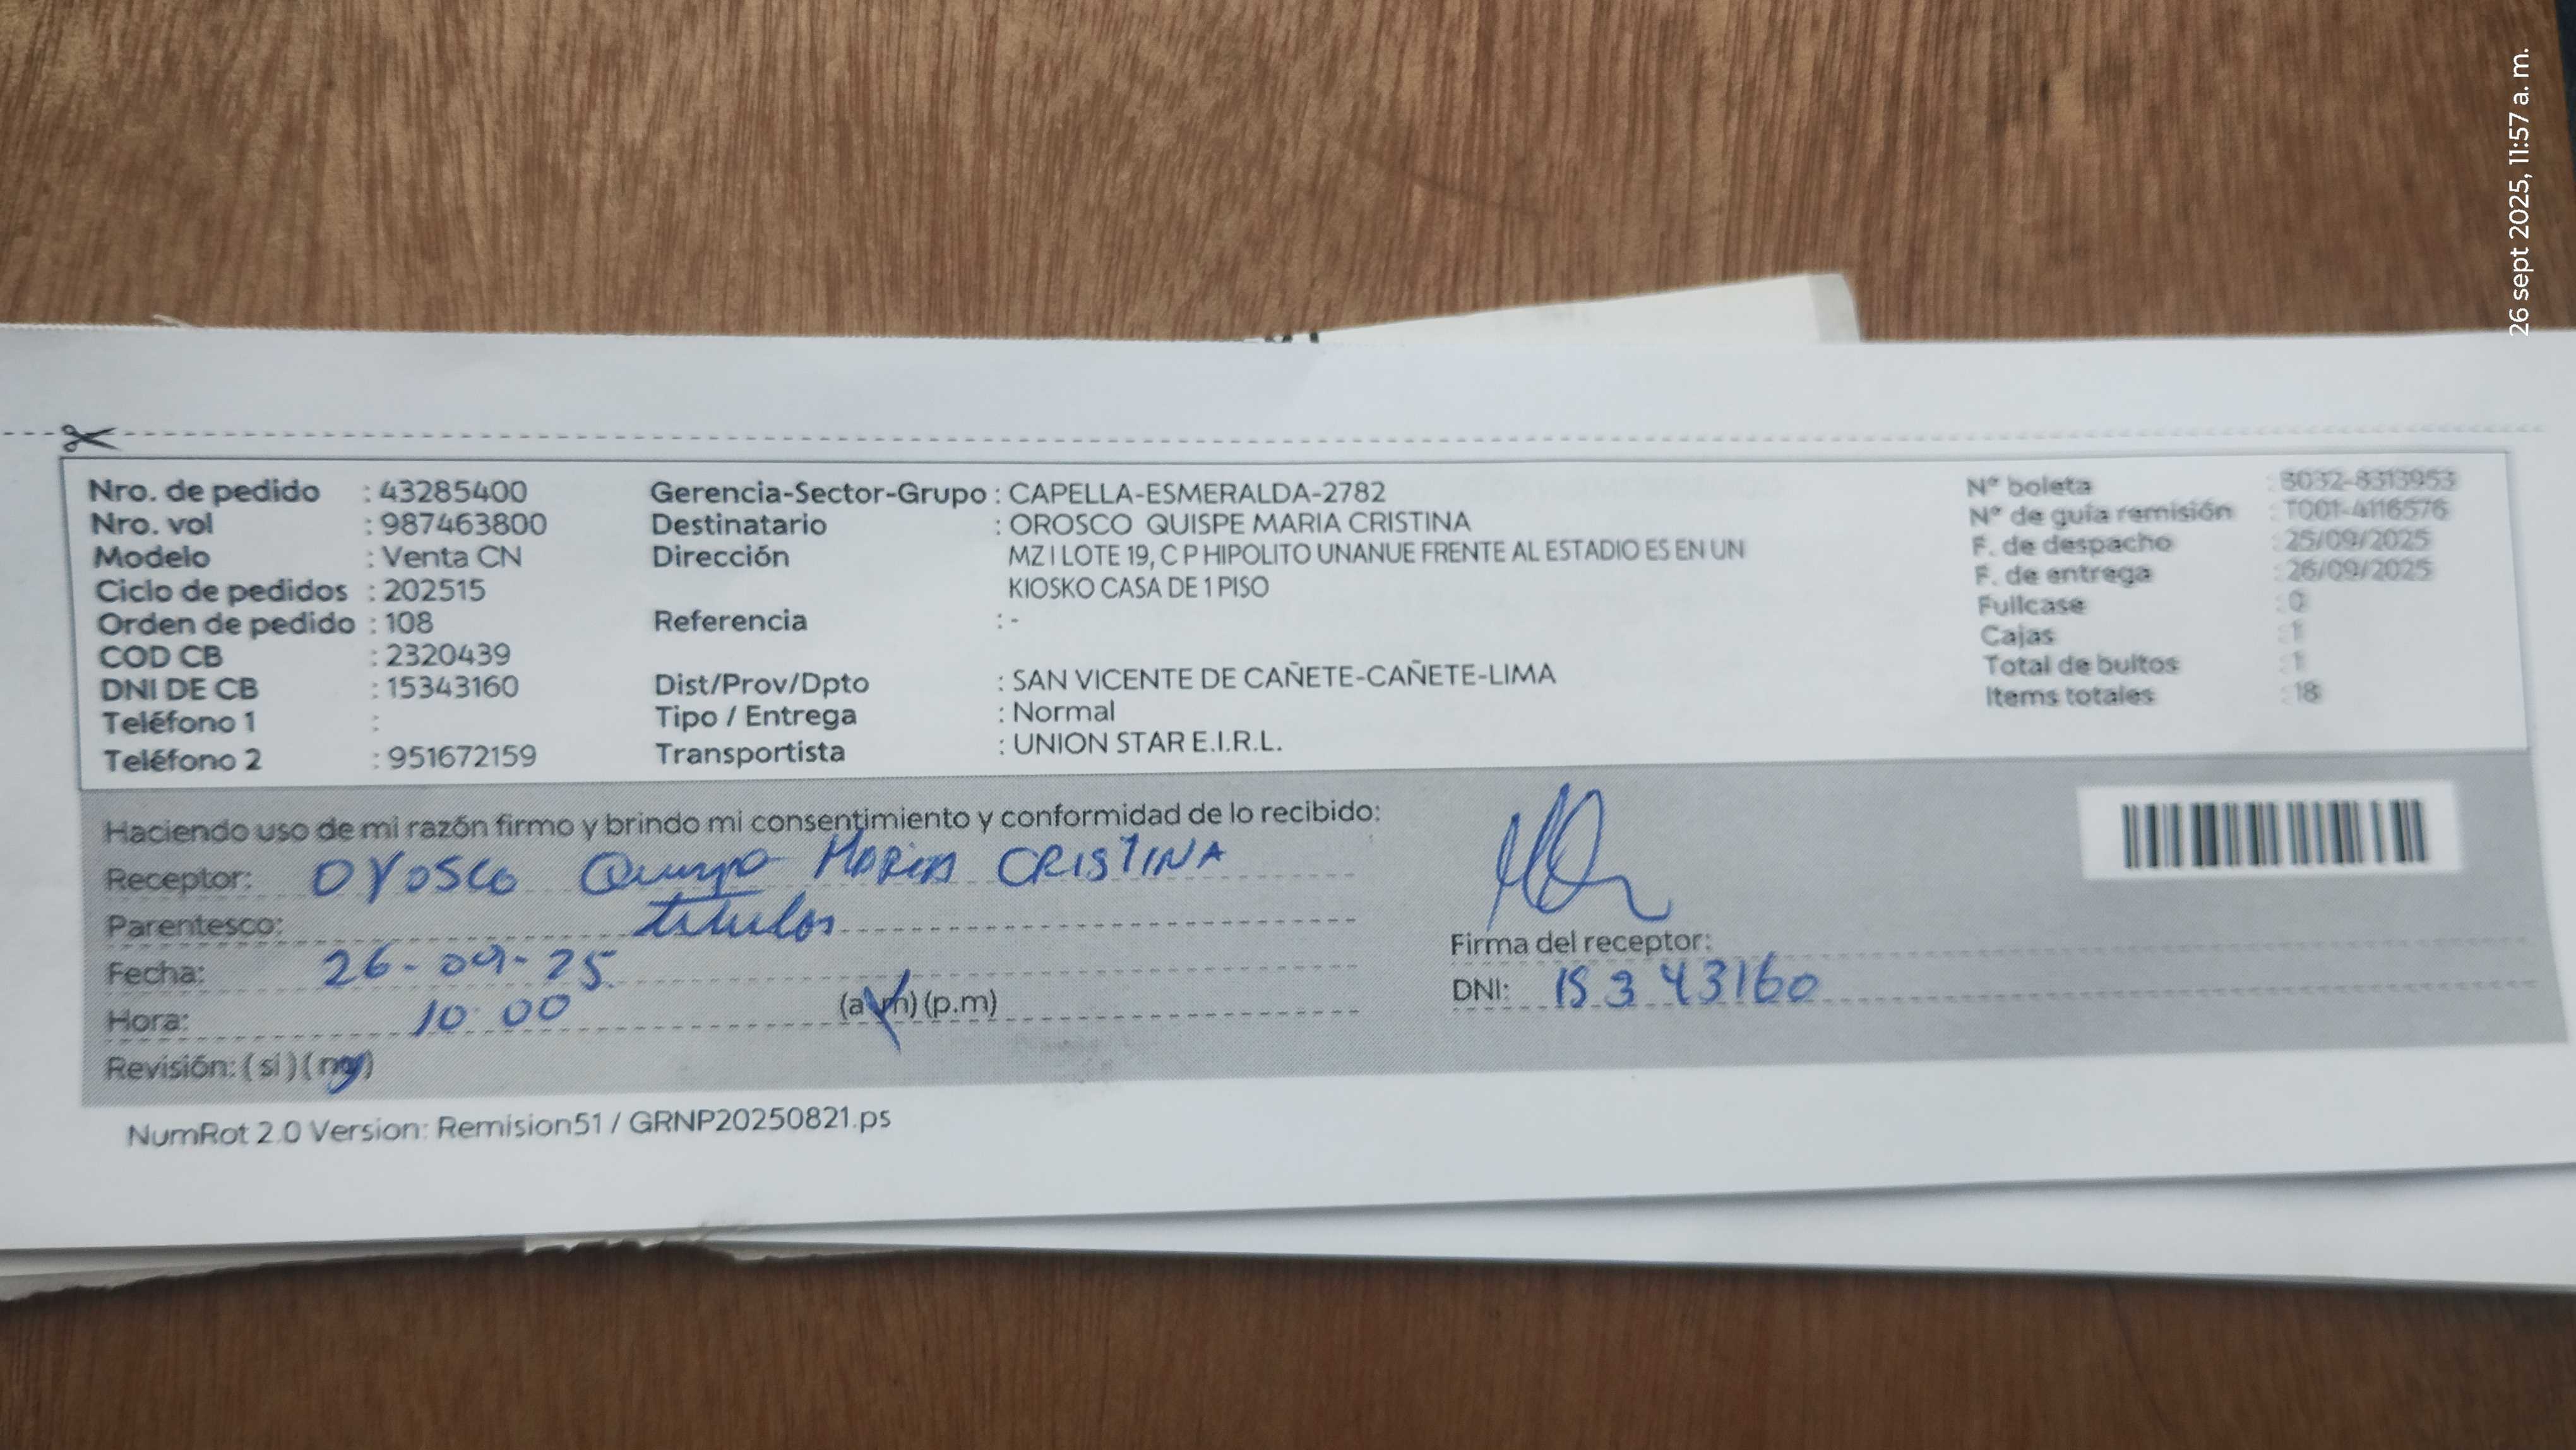 26 sept 2025, 11:57 a. m.
Nro. de pedido : 43285400
Nro. vol : 987463800
Modelo : Venta CN
Ciclo de pedidos : 202515
Orden de pedido : 108
COD CB : 2320439
DNI DE CB : 15343160
Teléfono 1 :
Teléfono 2 : 951672159
Gerencia-Sector-Grupo : CAPELLA-ESMERALDA-2782
Destinatario : OROSCO QUISPE MARIA CRISTINA
Dirección MZ I LOTE 19, C P HIPOLITO UNANUE FRENTE AL ESTADIO ES EN UN
KIOSKO CASA DE 1 PISO
Referencia : -
Dist/Prov/Dpto : SAN VICENTE DE CAÑETE-CAÑETE-LIMA
Tipo / Entrega : Normal
Transportista : UNION STAR E.I.R.L.
N° boleta : B032-8313953
N° de guía remisión : T001-4116576
F. de despacho : 25/09/2025
F. de entrega : 26/09/2025
Fullcase : 0
Cajas : 1
Total de bultos : 1
Items totales : 18
Haciendo uso de mi razón firmo y brindo mi consentimiento y conformidad de lo recibido:
Receptor: Orosco Quispe MARIA CRISTINA
Parentesco:
Fecha: 26-09-25
Hora: 10:00 (a.m) (p.m)
Revisión: (si) (no)
Firma del receptor:
DNI: 15343160
NumRot 2.0 Version: Remision51 / GRNP20250821.ps